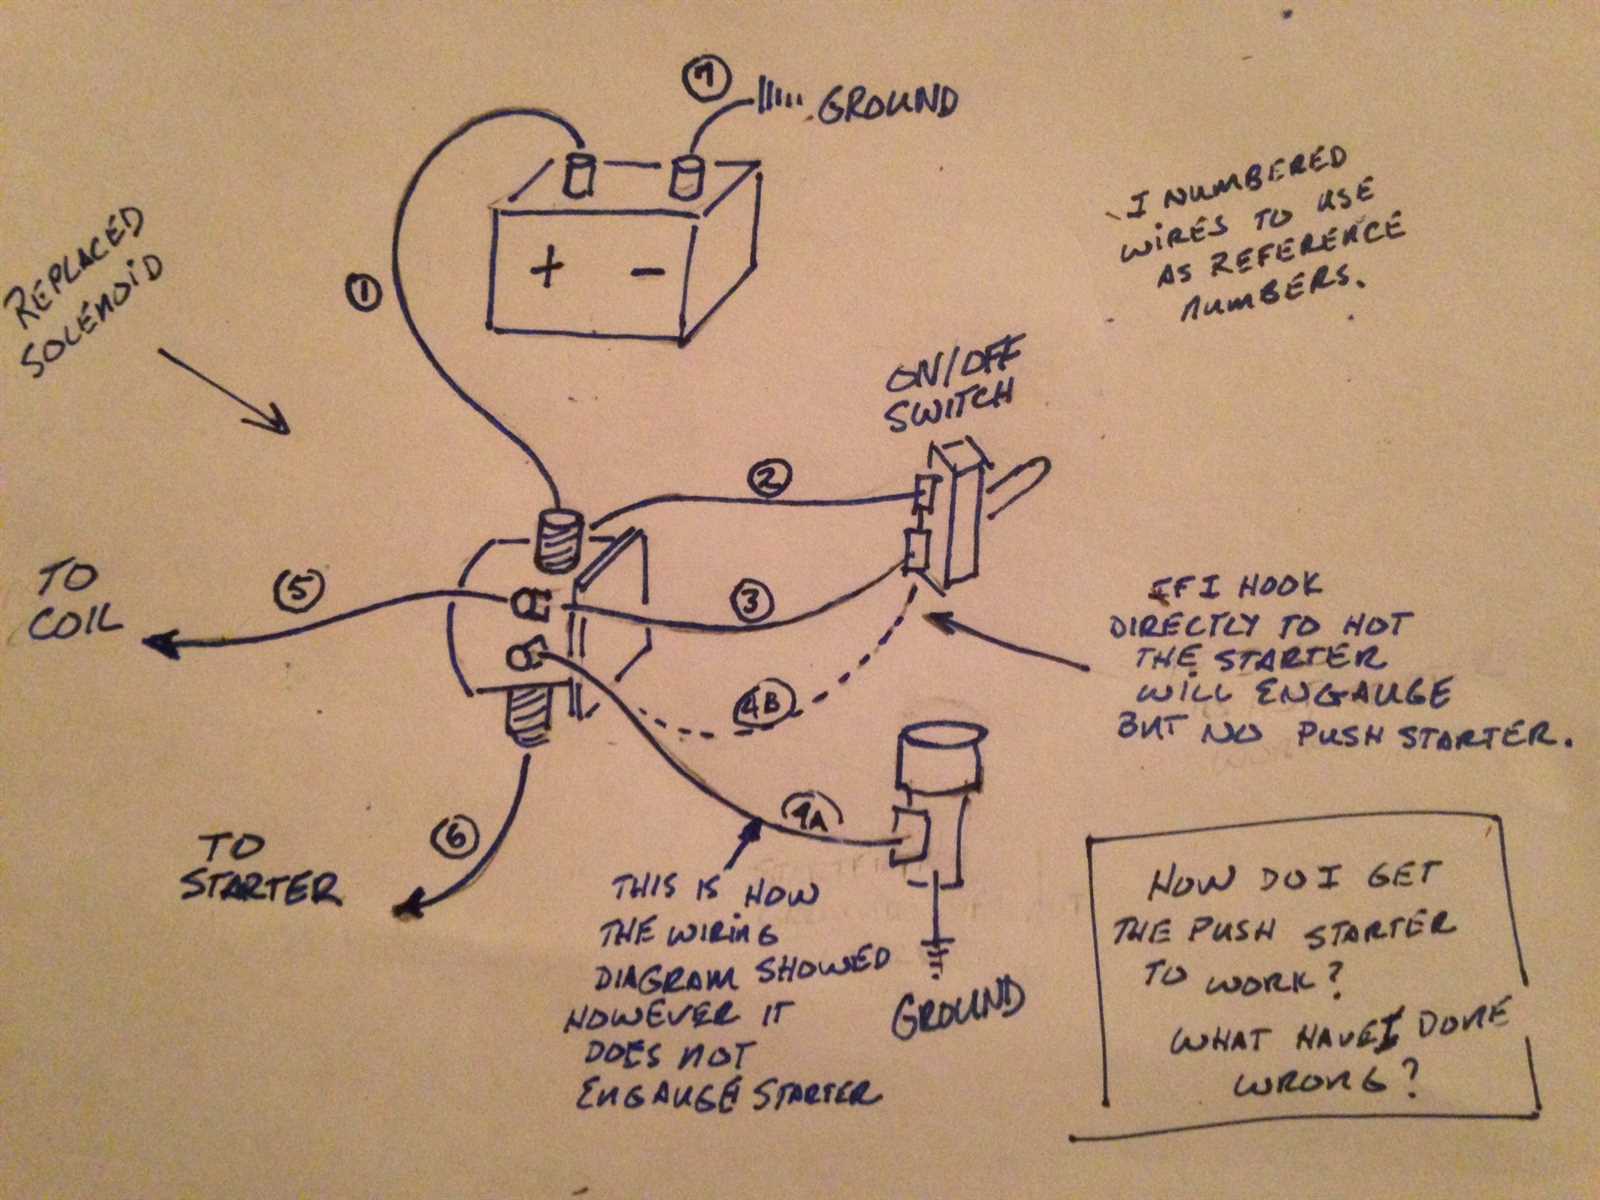 7
GROUND
I NUMBERED
WIRES TO USE
AS REFERENCE
NUMBERS.
REPLACED
SOLENOID
1
+ -
ON/OFF
SWITCH
2
TO
COIL
5
3
IF I HOOK
DIRECTLY TO HOT
THE STARTER
WILL ENGAUGE
BUT NO PUSH STARTER.
4B
TO
STARTER
6
4A
THIS IS HOW
THE WIRING
DIAGRAM SHOWED
HOWEVER IT
DOES NOT
ENGAUGE STARTER
GROUND
HOW DO I GET
THE PUSH STARTER
TO WORK?
WHAT HAVE I DONE
WRONG?